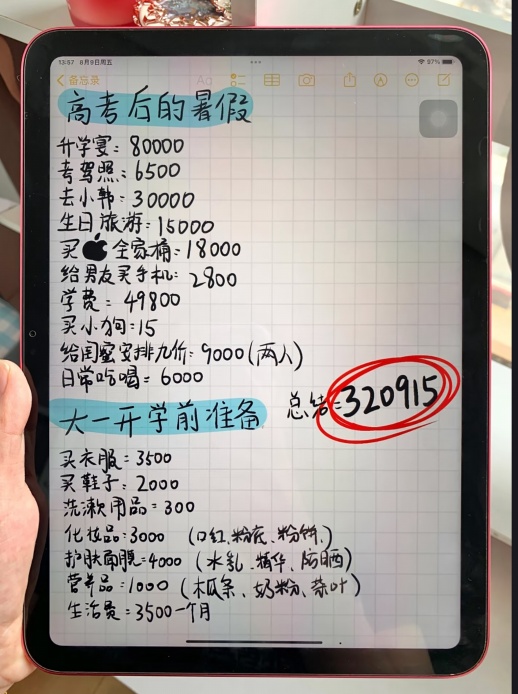 13:57 8月9日周五
97%
备忘录
高考后的暑假
升学宴:80000
考驾照:6500
去小韩:30000
生日旅游:15000
买全家桶:18000
给男友买手机:2800
学费:49800
买小狗:15
给闺蜜安排九价:9000(两人)
日常吃喝=6000
总结=320915
大一开学前准备
买衣服=3500
买鞋子:2000
洗漱用品=300
化妆品:3000 (口红、粉底、粉饼、)
护肤面膜=4000 (水乳、精华、防晒)
营养品:1000 (木瓜条、奶粉、茶叶)
生活费=3500一个月